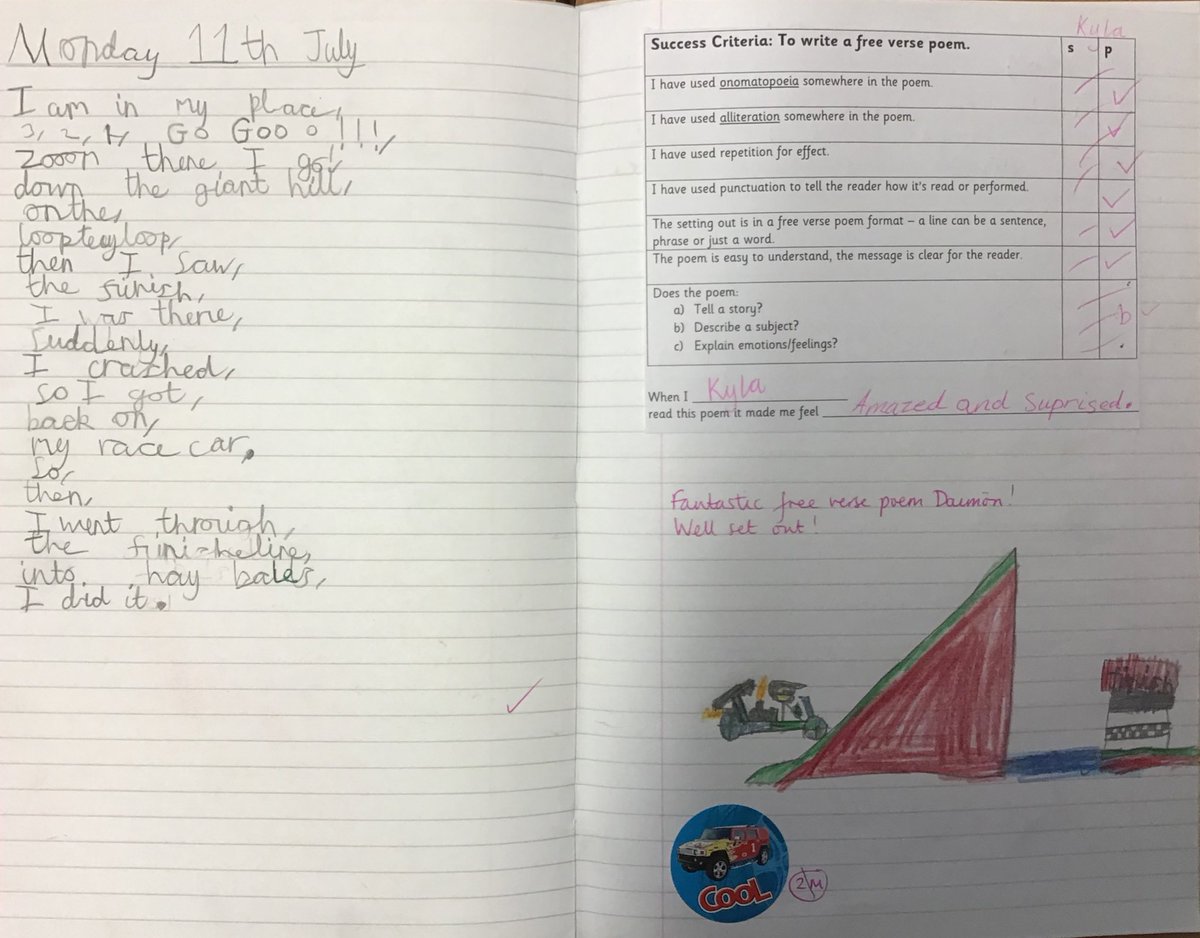 Monday 11th July
I am in my place,
3, 2, 1, Go Gooo!!!,
Zooon there I go!,
down the giant hill,
on the,
loopteyloop,
then I saw,
the finish,
I was there,
Suddenly,
I crashed,
so I got,
back on,
my race car.
So,
then,
I went through,
the finisheline,
into hay bales,
I did it.
Kyla
Success Criteria: To write a free verse poem. s p
I have used onomatopoeia somewhere in the poem.
I have used alliteration somewhere in the poem.
I have used repetition for effect.
I have used punctuation to tell the reader how it's read or performed.
The setting out is in a free verse poem format – a line can be a sentence,
phrase or just a word.
The poem is easy to understand, the message is clear for the reader.
Does the poem:
a) Tell a story?
b) Describe a subject? b
c) Explain emotions/feelings?
When I Kyla
read this poem it made me feel Amazed and Suprised.
Fantastic free verse poem Daimōn!
Well set out!
finish
1
COOL